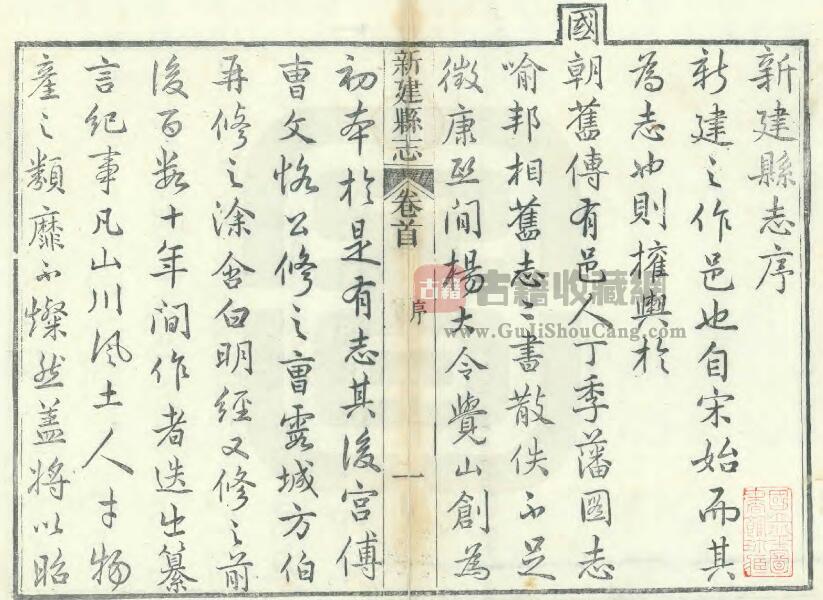 新建縣志序
新建之作邑也自宋始而其
為志也則權輿於
國
朝舊傳有邑人丁季藩圖志
喻邦相舊志二書散佚不足
徵康熙間楊大令覺山創為
新建縣志 卷首 序 一
初本於是有志其後宮傅
曹文恪公修之曹露城方伯
再修之涂舍白明經又修之前
後百數十年間作者迭出纂
言紀事凡山川風土人才物
產之類靡不燦然蓋將以昭
古籍 古籍收藏網
www.GuJiShouCang.com